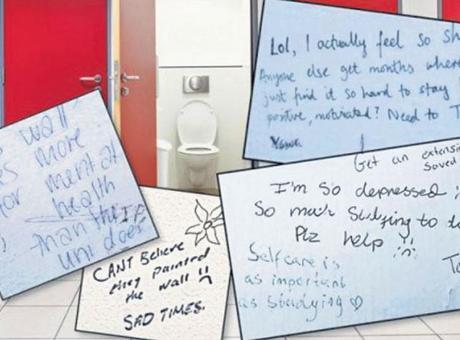 Lol, I actually feel so sh
Anyone else get months where
just find it so hard to stay
positive, motivated? Need to T
wall
s more
for mental
health
than the
uni does
CANT BeLieve
they painted
the wall
SAD TIMES.
Get an extensi
saved
I'm so depressed :
So much studying to
Plz help
Self care is
as important
as studying ♡